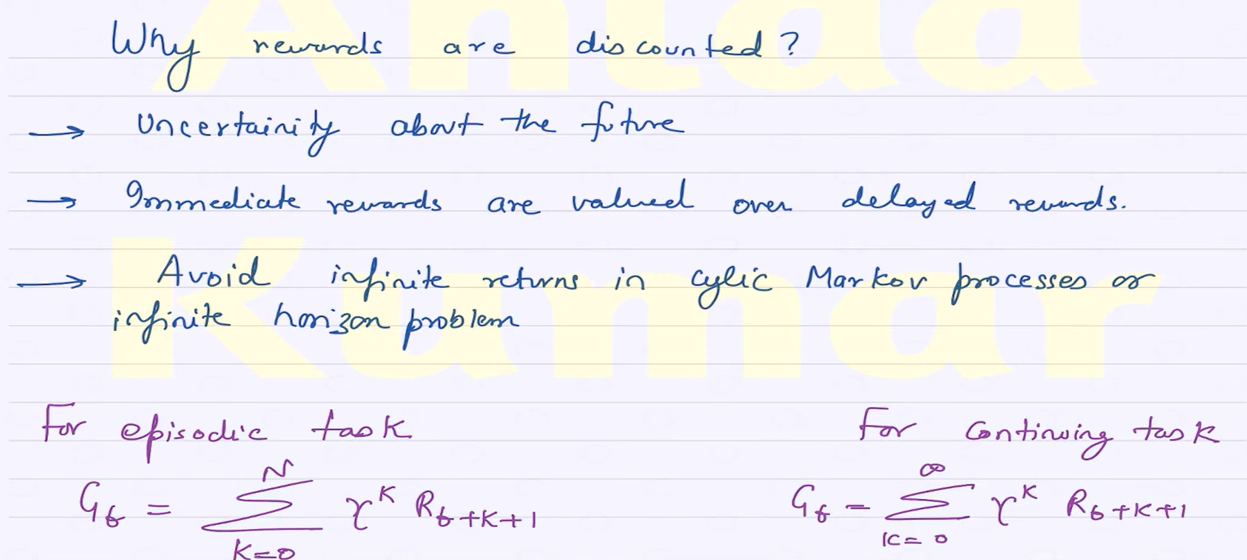 Why rewards are discounted?
→ Uncertainity about the future
→ Immediate rewards are valued over delayed rewards.
→ Avoid infinite returns in cylic Markov processes or
infinite horizon problem
Kumar
For episodic task For continuing task
G_t = ∑_{K=0}^{N} γ^K R_{t+K+1} G_t = ∑_{K=0}^{∞} γ^K R_{t+K+1}